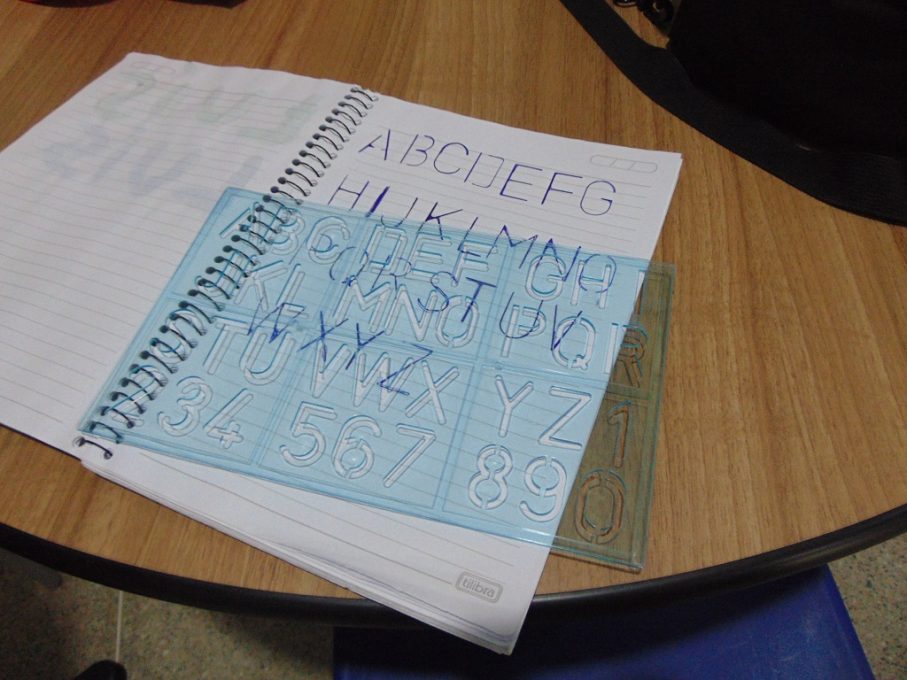 ABCDEFG
HIJKLMNO
PQRSTUV
WXYZ
ABC DEF GHI
KL MNO PQR
TU VWX YZ1
34 567 890
tilibra